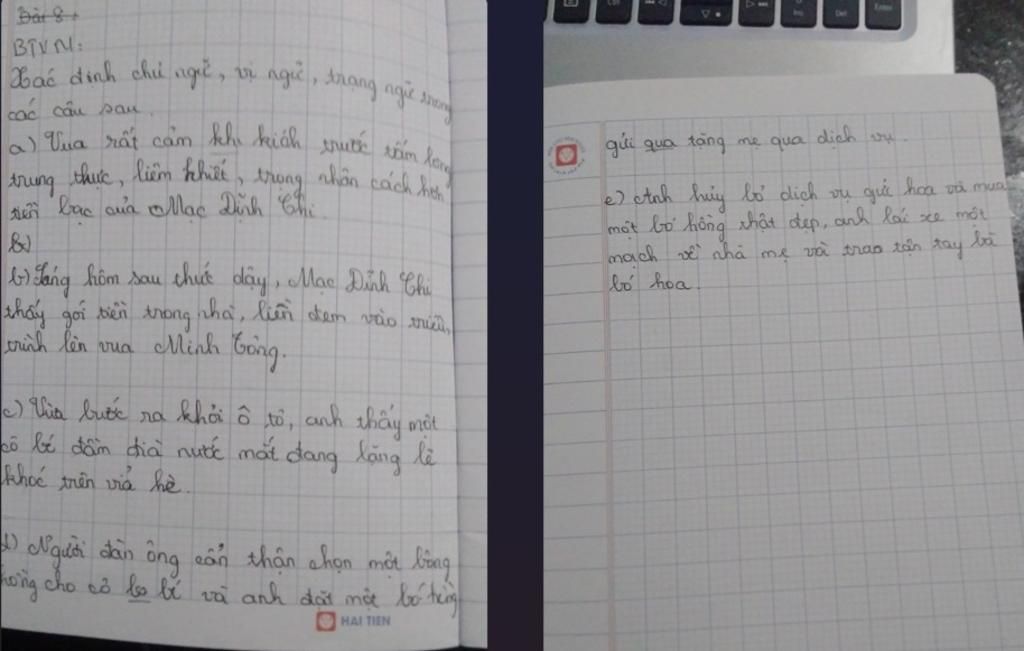 Bài 8:
BTVN:
Xác định chủ ngữ, vị ngữ, trạng ngữ trong
các câu sau.
a) Vua rất cảm khi kích trước tấm lòng
trung thực, liêm khiết, trọng nhân cách hơn
tiền bạc của Mạc Đĩnh Chi.
b)
b) Sáng hôm sau thức dậy, Mạc Đĩnh Chi
thấy gói tiền trong nhà, liền đem vào triều,
trình lên vua Minh Tông.
c) Vừa bước ra khỏi ô tô, anh thấy một
cô bé đầm đìa nước mắt đang lặng lẽ
khóc trên vỉa hè.
d) Người đàn ông cẩn thận chọn một bông
hồng cho cô bé và anh đặt một bó hồng
HAI TIEN
gửi qua tặng mẹ qua dịch vụ.
e) Anh hủy bỏ dịch vụ gửi hoa và mua
một bó hồng thật đẹp, anh lái xe một
mạch về nhà mẹ và trao tận tay bà
bó hoa.